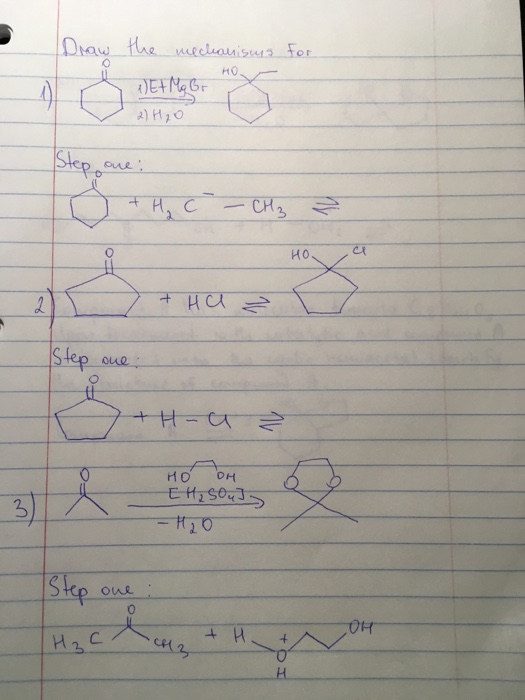 Draw the mechanisms for
O
HO
1) 1) EtMgBr
2) H2O
Step one:
O
+ H2C⁻ — CH3 ⇌
O
HO Cl
2) + HCl ⇌
Step one:
O
+ H - Cl ⇌
O
HO OH
[H2SO4]
O O
3)
- H2O
Step one:
O
H3C CH3 + H O+ OH
H